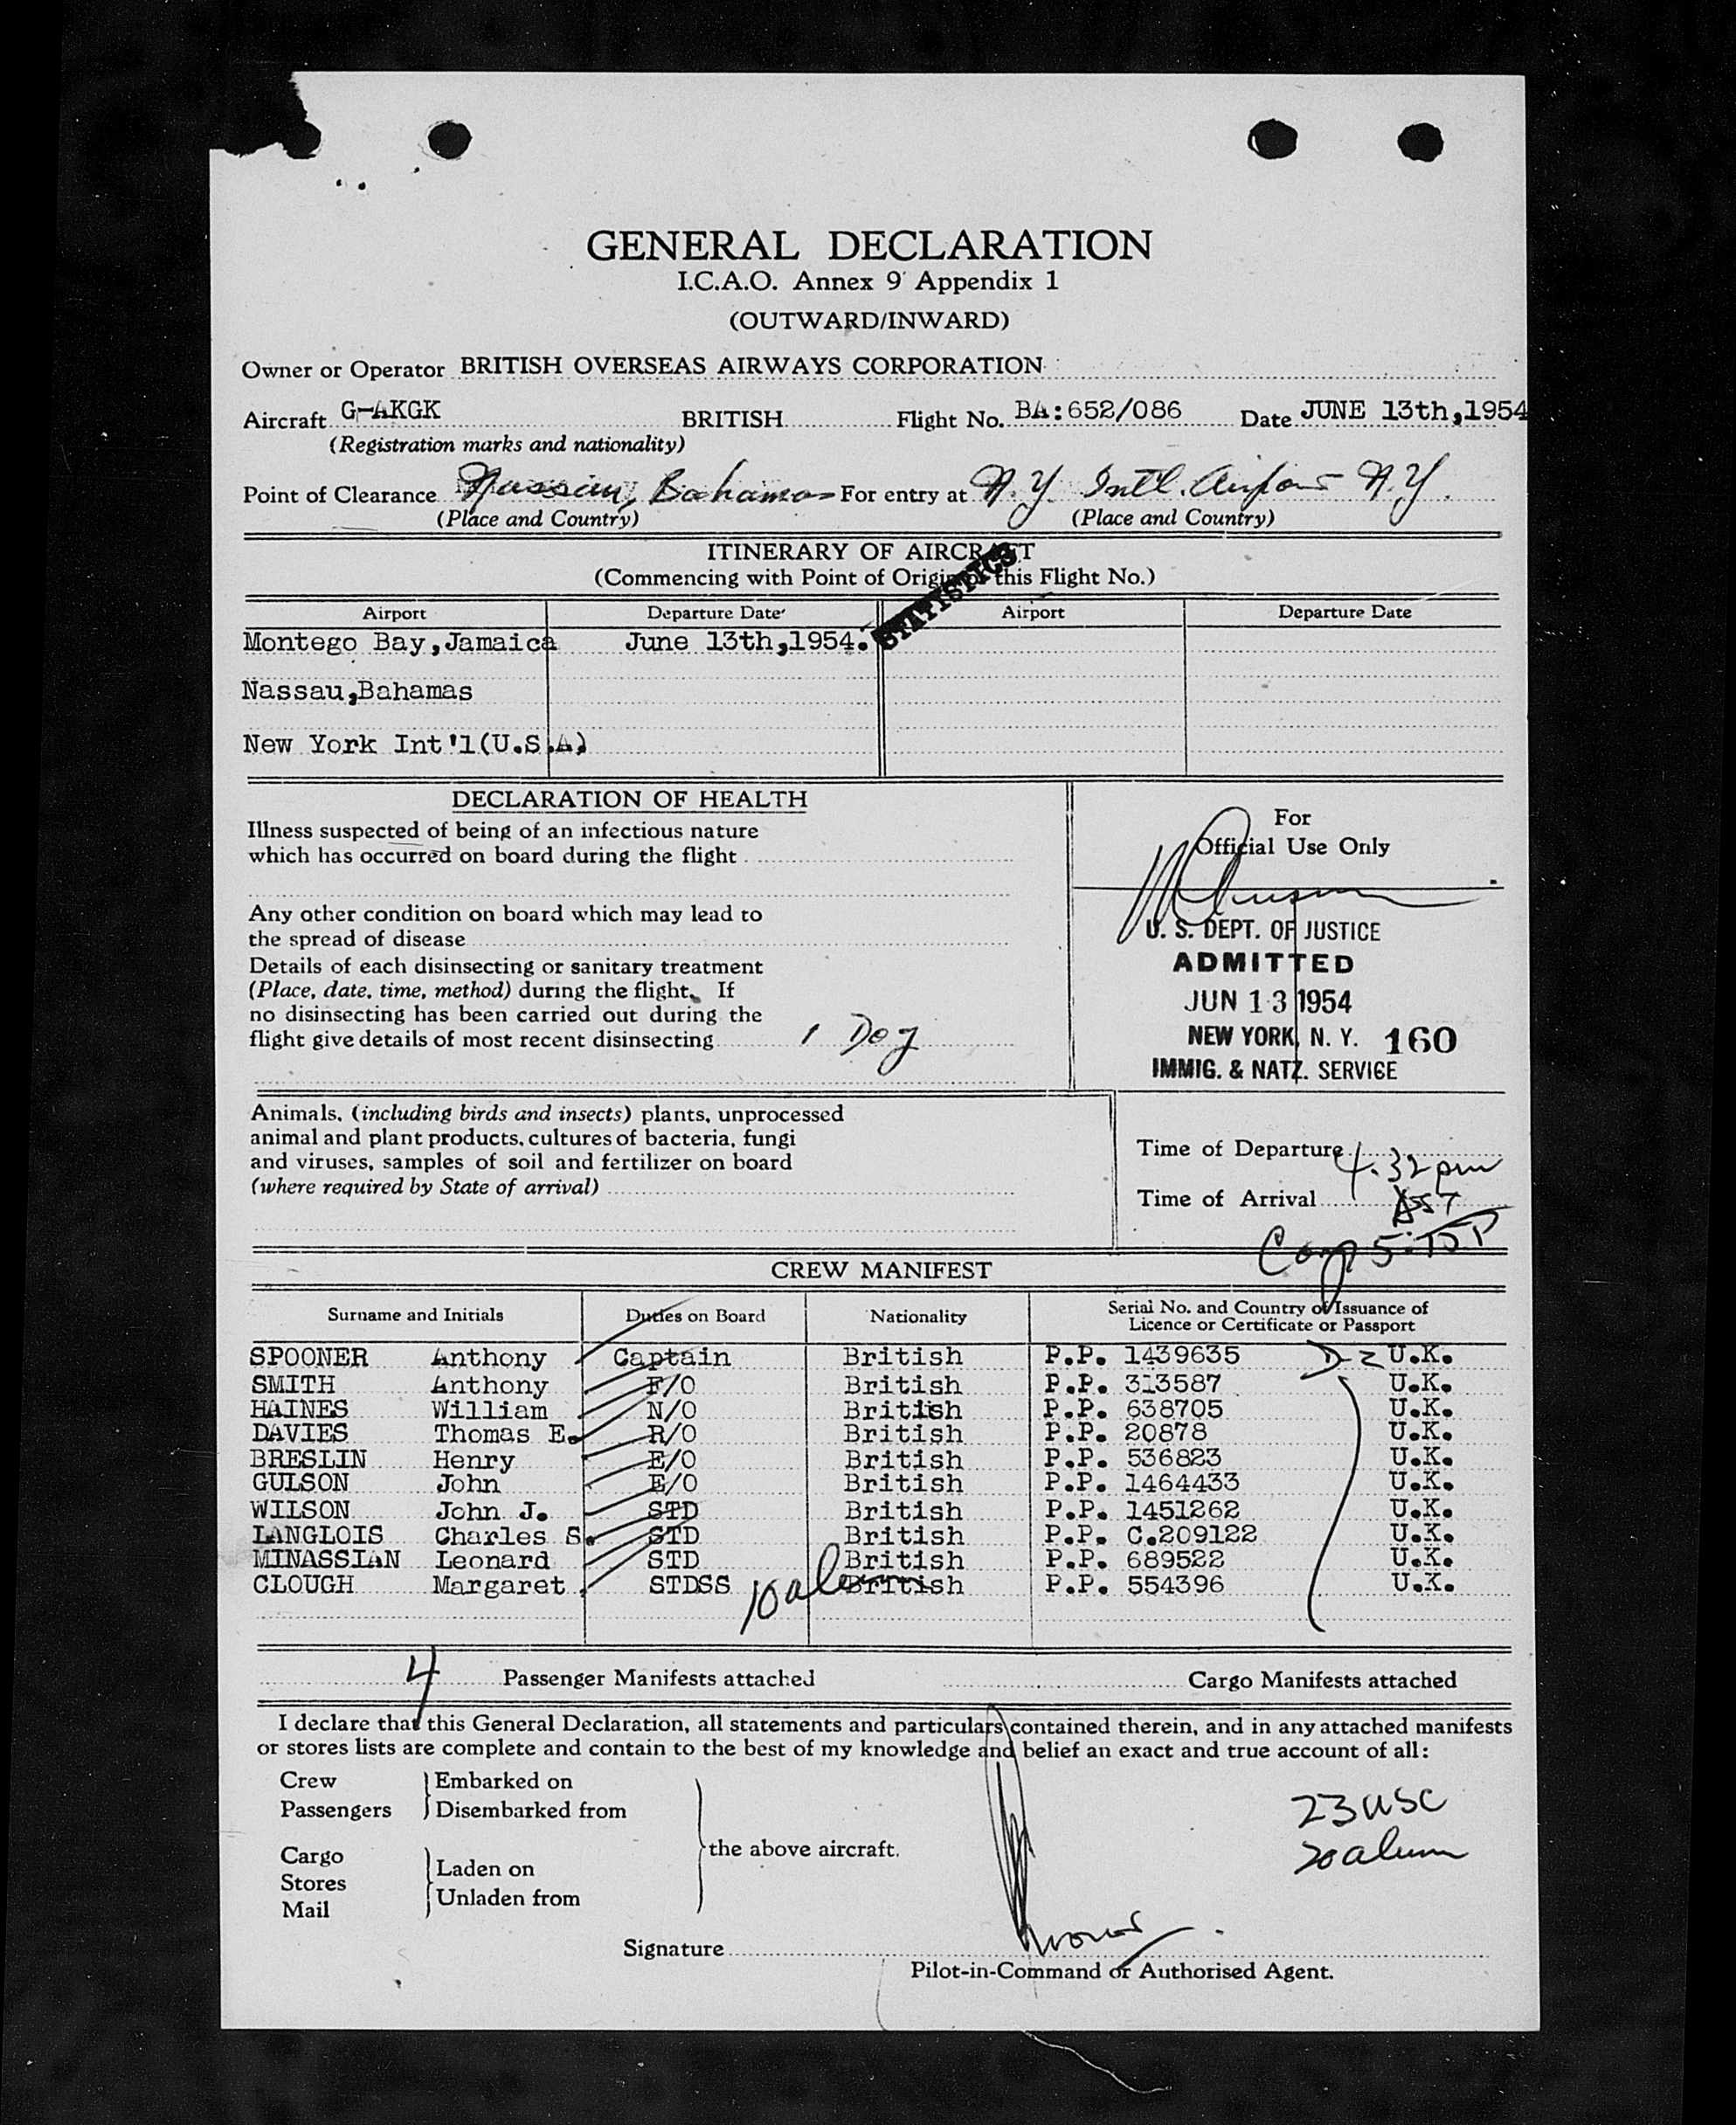 GENERAL DECLARATION
I.C.A.O. Annex 9 Appendix 1
(OUTWARD/INWARD)
Owner or Operator BRITISH OVERSEAS AIRWAYS CORPORATION
Aircraft G-AKGK BRITISH Flight No. BA:652/086 Date JUNE 13th,1954
(Registration marks and nationality)
Point of Clearance Nassau, Bahamas For entry at N.Y. Intl. Airport N.Y.
(Place and Country) (Place and Country)
ITINERARY OF AIRCRAFT
(Commencing with Point of Origin of this Flight No.)
STATISTICS
Airport Departure Date Airport Departure Date
Montego Bay,Jamaica June 13th,1954.
Nassau,Bahamas
New York Int'l(U.S.A)
DECLARATION OF HEALTH
Illness suspected of being of an infectious nature
which has occurred on board during the flight
Any other condition on board which may lead to
the spread of disease
Details of each disinsecting or sanitary treatment
(Place, date, time, method) during the flight. If
no disinsecting has been carried out during the
flight give details of most recent disinsecting 1 Dog
For
Official Use Only
U. S. DEPT. OF JUSTICE
ADMITTED
JUN 13 1954
NEW YORK, N. Y. 160
IMMIG. & NATZ. SERVICE
Animals, (including birds and insects) plants, unprocessed
animal and plant products, cultures of bacteria, fungi
and viruses, samples of soil and fertilizer on board
(where required by State of arrival)
Time of Departure 4.32 pm
Time of Arrival
CREW MANIFEST
Surname and Initials Duties on Board Nationality Serial No. and Country of Issuance of
Licence or Certificate or Passport
SPOONER Anthony Captain British P.P. 1439635 D-2 U.K.
SMITH Anthony F/O British P.P. 313587 U.K.
HAINES William N/O British P.P. 638705 U.K.
DAVIES Thomas E. R/O British P.P. 20878 U.K.
BRESLIN Henry E/O British P.P. 536823 U.K.
GULSON John E/O British P.P. 1464433 U.K.
WILSON John J. STD British P.P. 1451262 U.K.
LANGLOIS Charles S. STD British P.P. C.209122 U.K.
MINASSIAN Leonard STD British P.P. 689522 U.K.
CLOUGH Margaret STDSS British P.P. 554396 U.K.
4 Passenger Manifests attached Cargo Manifests attached
I declare that this General Declaration, all statements and particulars contained therein, and in any attached manifests
or stores lists are complete and contain to the best of my knowledge and belief an exact and true account of all:
Crew Embarked on
Passengers Disembarked from
the above aircraft.
Cargo Laden on
Stores Unladen from
Mail
23 USC
Signature
Pilot-in-Command or Authorised Agent.